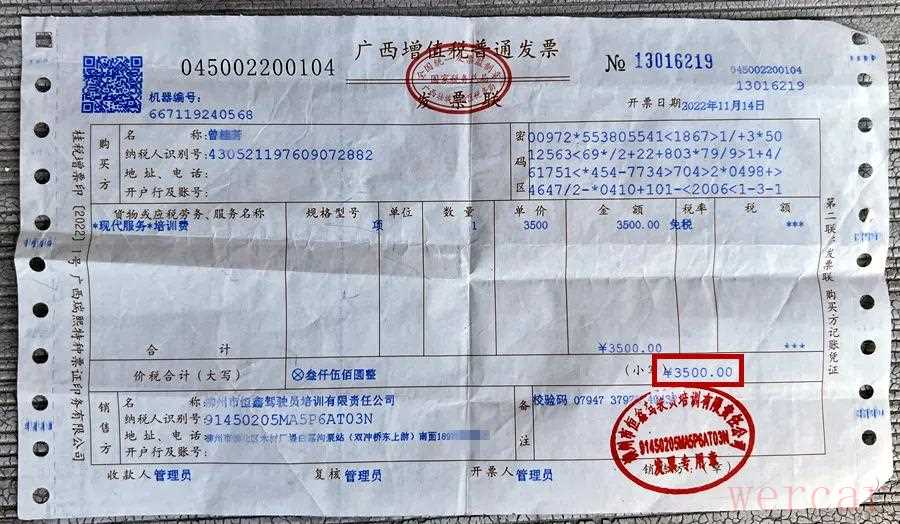 广西增值税普通发票
045002200104
发票联
№ 13016219
045002200104
13016219
机器编号:
667119240568
开票日期2022年11月14日
购买方
名 称:曾
纳税人识别号:430521197609072882
地 址、电 话:
开户行及账号:
密码区
00972*553805541<1867>1/+3*50
12563<69*/2+22+803*79/9>1+4/
61751<*454-7734>704>2*0498+>
4647/2-*0410+101-<2006<1-3-1
货物或应税劳务、服务名称 规格型号 单位 数 量 单 价 金 额 税率 税 额
*现代服务*培训费 项 1 3500 3500.00 免税 ***
合 计 ¥3500.00 ***
价税合计(大写) ⊗叁仟伍佰圆整 (小写)¥3500.00
销售方
名 称:柳州市恒鑫驾驶员培训有限责任公司
纳税人识别号:91450205MA5P6AT03N
地 址、电 话:
开户行及账号:
备注
校验码 07947
柳州市恒鑫驾驶员培训有限责任公司
91450205MA5P6AT03N
发票专用章
收款人 管理员 复核 管理员 开票人 管理员
第二联:发票联 购买方记账凭证
wercar